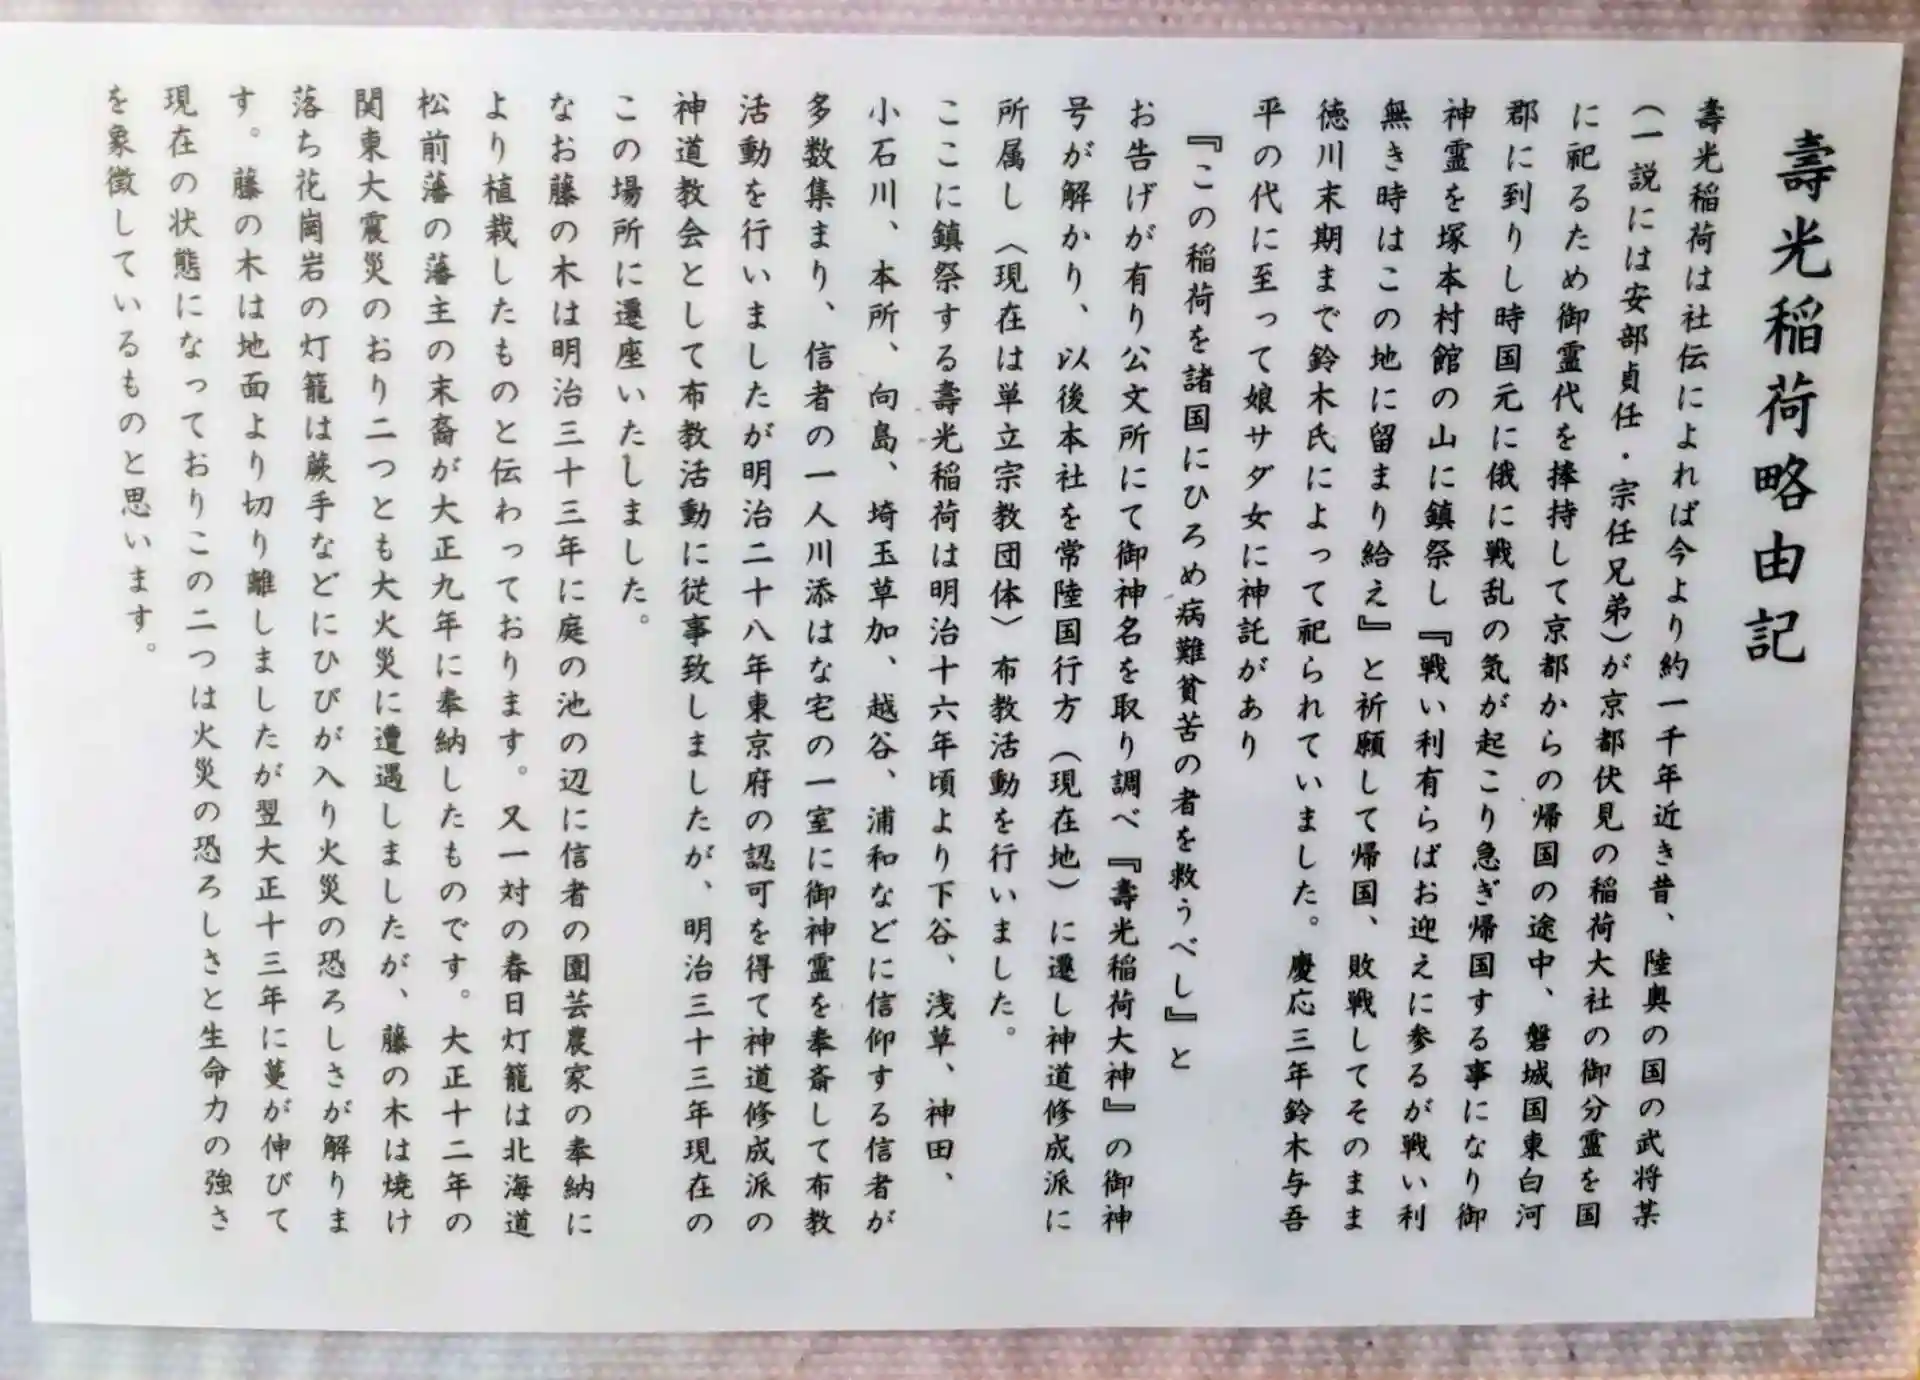 壽光稲荷略由記
壽光稲荷は社伝によれば今より約一千年近き昔、陸奥の国の武将某
（一説には安部貞任・宗任兄弟）が京都伏見の稲荷大社の御分霊を国
に祀るため御霊代を捧持して京都からの帰国の途中、磐城国東白河
郡に到りし時国元に俄に戦乱の気が起こり急ぎ帰国する事になり御
神霊を塚本村館の山に鎮祭し『戦い利有らばお迎えに参るが戦い利
無き時はこの地に留まり給え』と祈願して帰国、敗戦してそのまま
徳川末期まで鈴木氏によって祀られていました。慶応三年鈴木与吾
平の代に至って娘サダ女に神託があり
『この稲荷を諸国にひろめ病難貧苦の者を救うべし』と
お告げが有り公文所にて御神名を取り調べ『壽光稲荷大神』の御神
号が解かり、以後本社を常陸国行方（現在地）に遷し神道修成派に
所属し（現在は単立宗教団体）布教活動を行いました。
ここに鎮祭する壽光稲荷は明治十六年頃より下谷、浅草、神田、
小石川、本所、向島、埼玉草加、越谷、浦和などに信仰する信者が
多数集まり、信者の一人川添はな宅の一室に御神霊を奉斎して布教
活動を行いましたが明治二十八年東京府の認可を得て神道修成派の
神道教会として布教活動に従事致しましたが、明治三十三年現在の
この場所に遷座いたしました。
なお藤の木は明治三十三年に庭の池の辺に信者の園芸農家の奉納に
より植栽したものと伝わっております。又一対の春日灯籠は北海道
松前藩の藩主の末裔が大正九年に奉納したものです。大正十二年の
関東大震災のおり二つとも大火災に遭遇しましたが、藤の木は焼け
落ち花崗岩の灯籠は蕨手などにひびが入り火災の恐ろしさが解りま
す。藤の木は地面より切り離しましたが翌大正十三年に蔓が伸びて
現在の状態になっておりこの二つは火災の恐ろしさと生命力の強さ
を象徴しているものと思います。